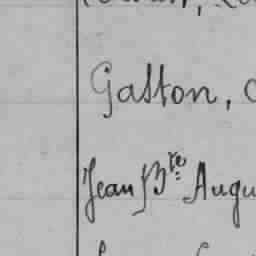 Gaston,
Jean Bte Augu